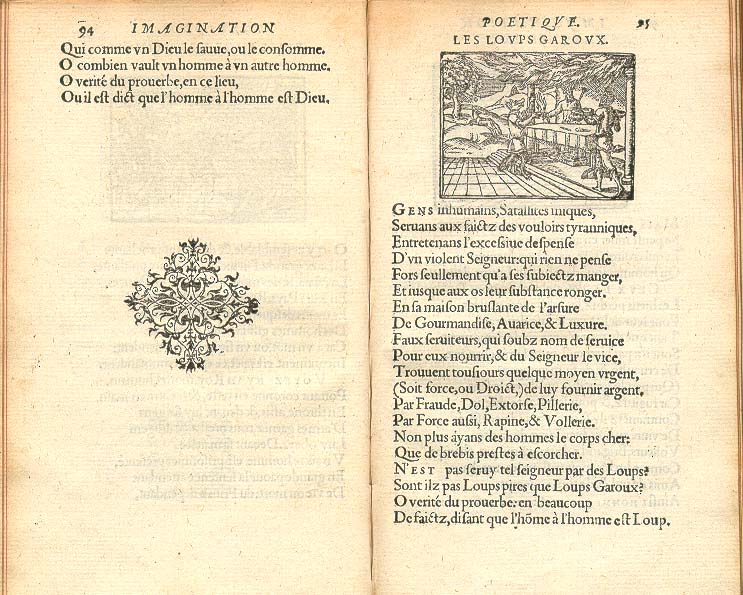 94 IMAGINATION
Qui comme vn Dieu le sauue, ou le consomme.
O combien vault vn homme à vn autre homme.
O verité du prouerbe, en ce lieu,
Ou il est dict que l'homme à l'homme est Dieu.
POETIQVE. 95
LES LOVPS GAROVX.
GENS inhumains, Satallites iniques,
Seruans aux faictz des vouloirs tyranniques,
Entretenans l'excessiue despense
D'vn violent Seigneur: qui rien ne pense
Fors seullement qu'a ses subiectz manger,
Et iusque aux os leur substance ronger.
En sa maison bruslante de l'arsure
De Gourmandise, Auarice, & Luxure.
Faux seruiteurs, qui soubz nom de seruice
Pour eux nourrir, & du Seigneur le vice,
Trouuent tousiours quelque moyen vrgent,
(Soit force, ou Droict,) de luy fournir argent,
Par Fraude, Dol, Extorse, Pillerie,
Par Force aussi, Rapine, & Vollerie.
Non plus ayans des hommes le corps cher:
Que de brebis prestes à escorcher.
N'EST pas seruy tel seigneur par des Loups?
Sont ilz pas Loups pires que Loups Garoux?
O verité du prouerbe: en beaucoup
De faictz, disant que l'hõme à l'homme est Loup.